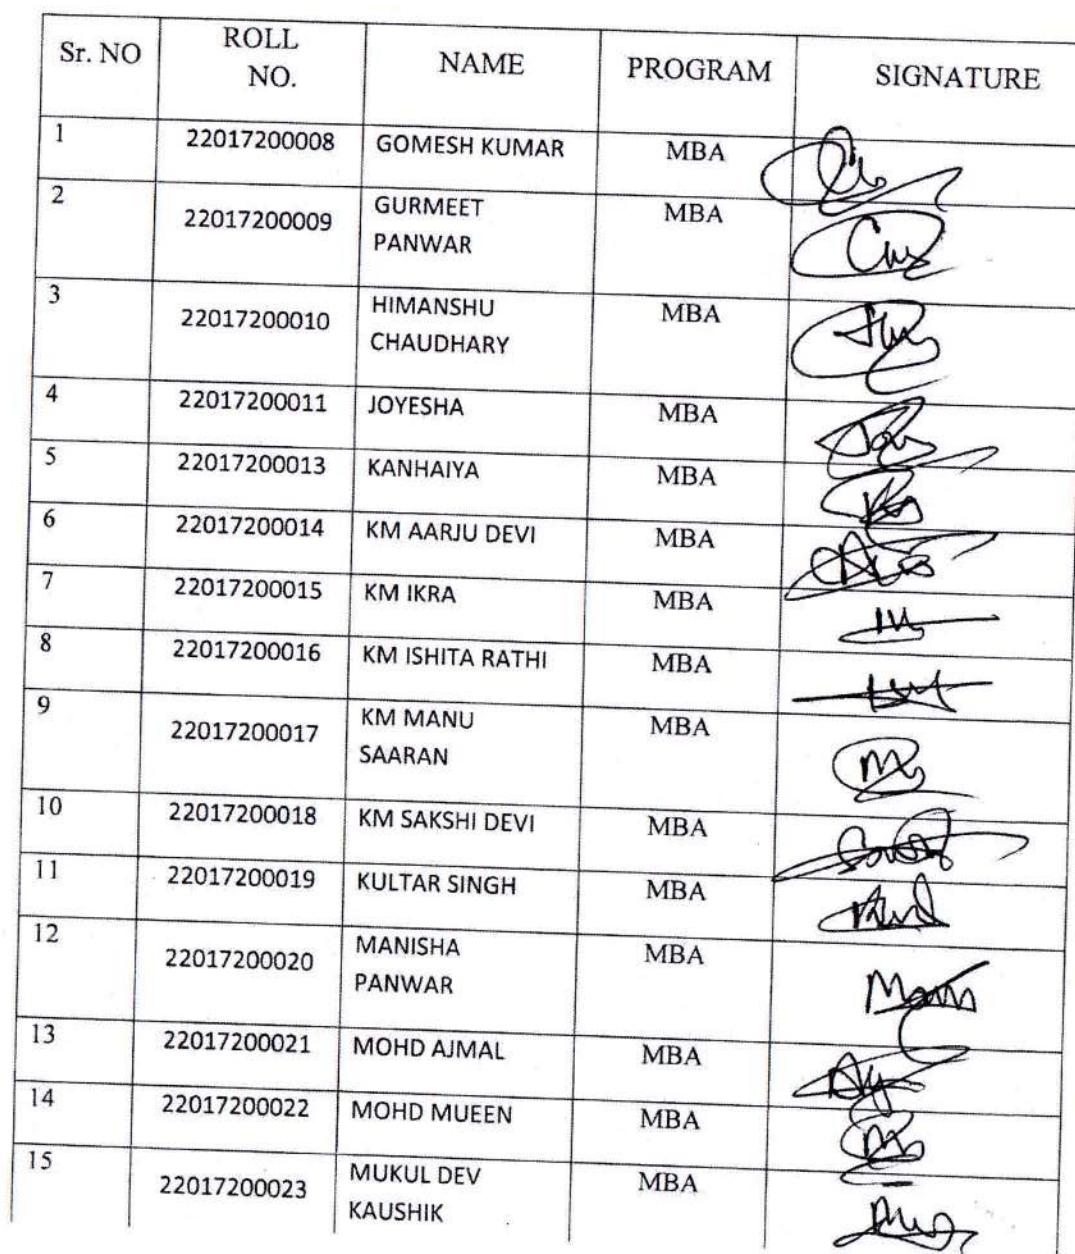 Sr. NO ROLL NO. NAME PROGRAM SIGNATURE
1 22017200008 GOMESH KUMAR MBA
2 22017200009 GURMEET PANWAR MBA
3 22017200010 HIMANSHU CHAUDHARY MBA
4 22017200011 JOYESHA MBA
5 22017200013 KANHAIYA MBA
6 22017200014 KM AARJU DEVI MBA
7 22017200015 KM IKRA MBA
8 22017200016 KM ISHITA RATHI MBA
9 22017200017 KM MANU SAARAN MBA
10 22017200018 KM SAKSHI DEVI MBA
11 22017200019 KULTAR SINGH MBA
12 22017200020 MANISHA PANWAR MBA
13 22017200021 MOHD AJMAL MBA
14 22017200022 MOHD MUEEN MBA
15 22017200023 MUKUL DEV KAUSHIK MBA